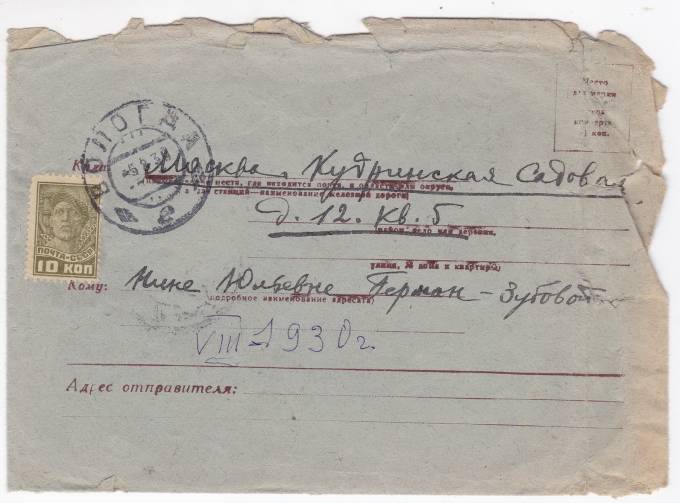 Место
для марки
коп.
ВОЛОГДА
Куда: Москва, Кудринская Садовая
места, где находится почта, и области или округа,
а для станций—наименование железной дороги)
д. 12. кв. 5
(район, село или деревня,
улица, № дома и квартиры)
ПОЧТА-СССР
10 КОП
Кому: Нине Юльевне Герман-Зубовой
(подробное наименование адресата)
VIII-1930 г.
Адрес отправителя: